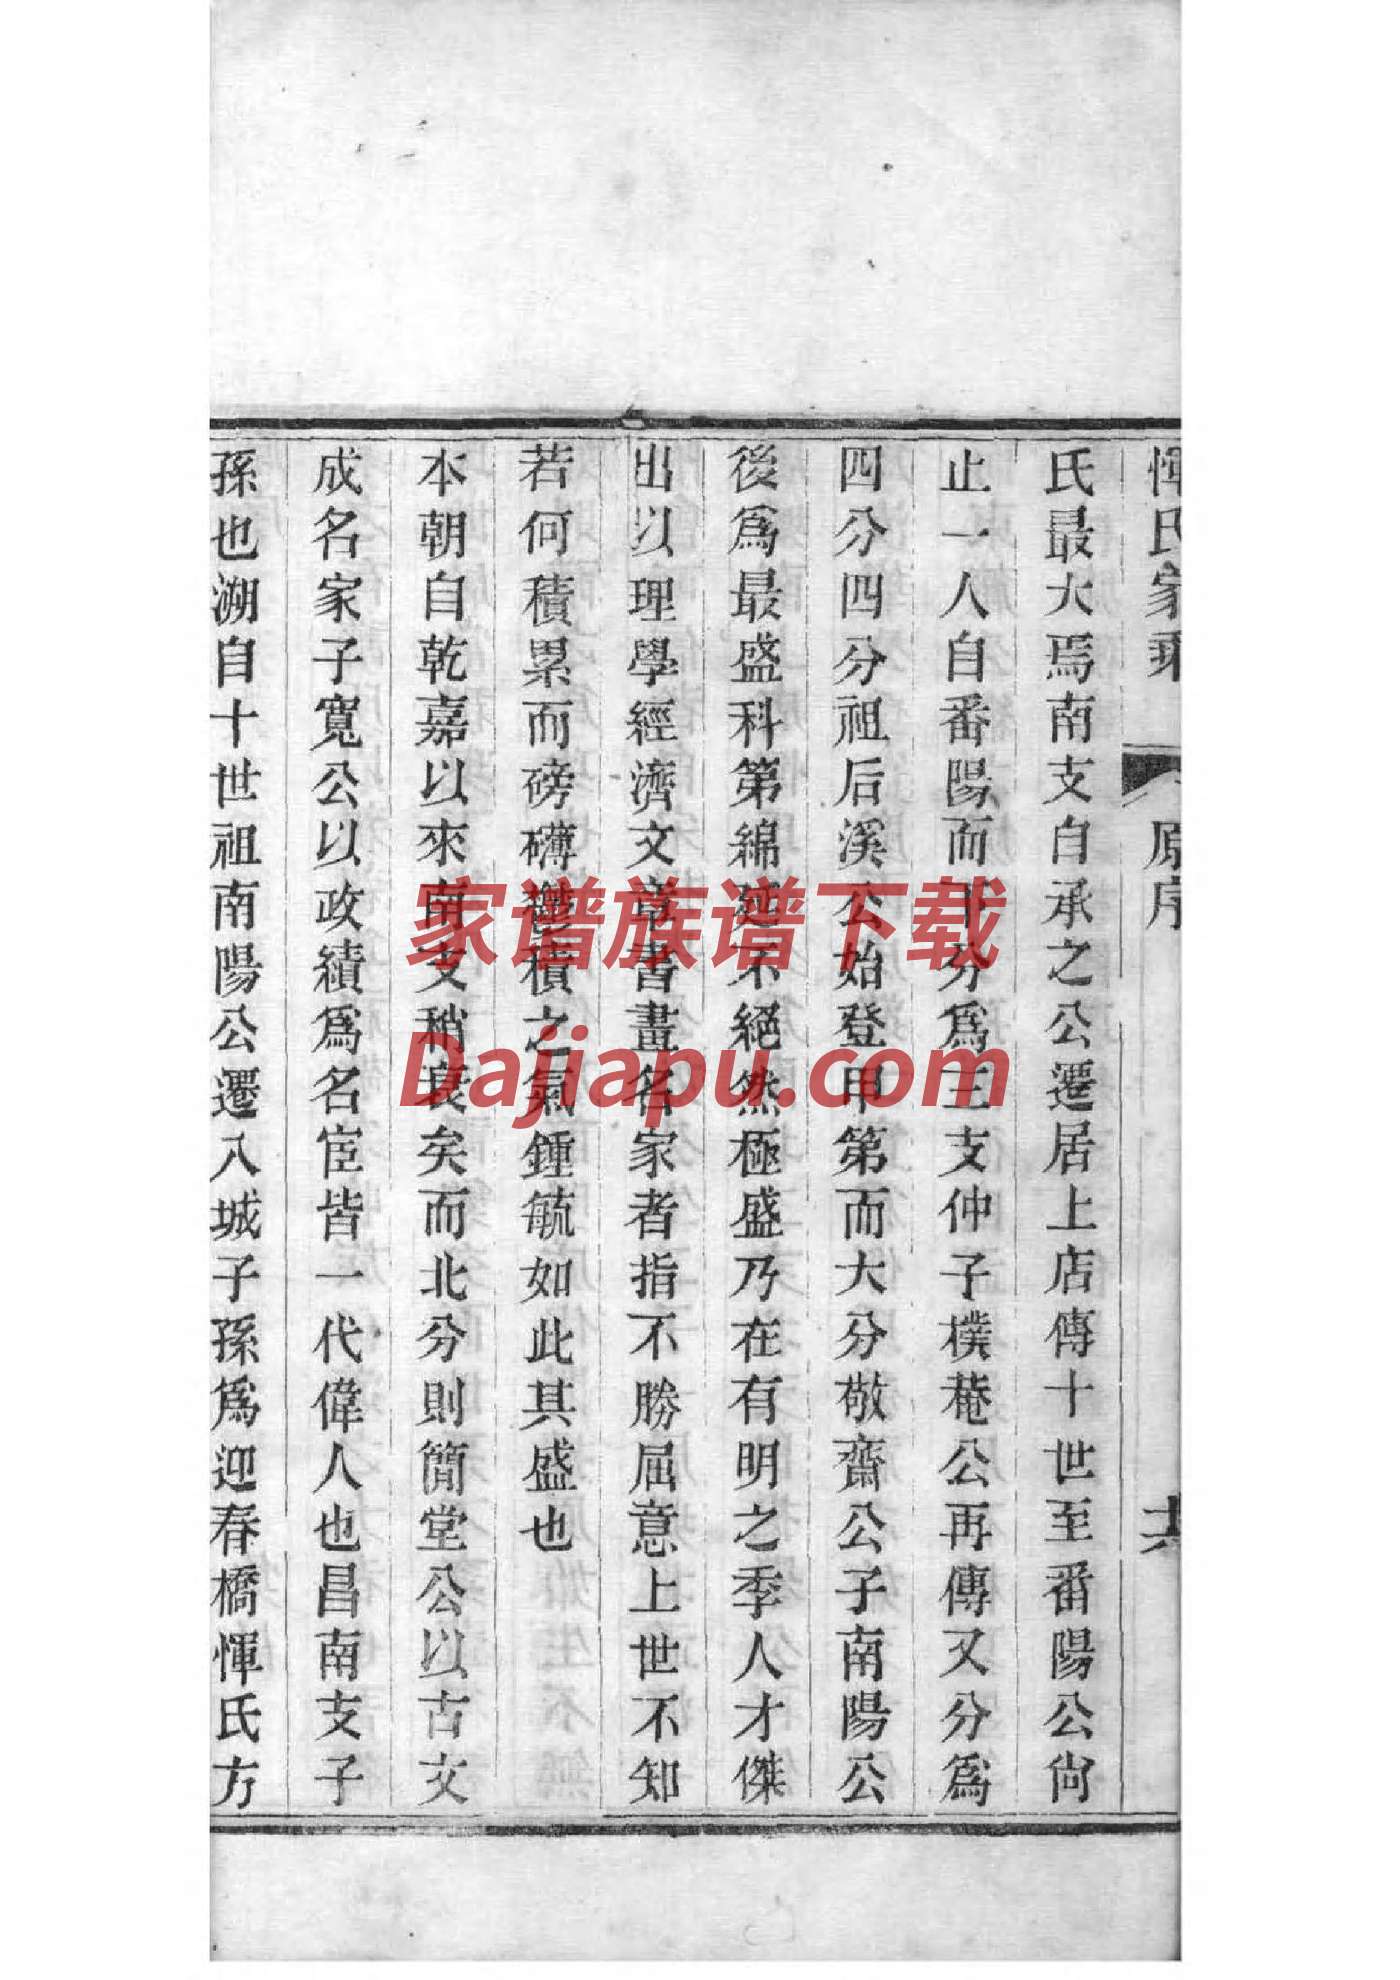 惲氏家乘
原序
氏最大焉南支自承之公遷居上店傳十世至番陽公尙
止一人自番陽而下分爲三支仲子樸菴公再傳又分爲
四分四分祖后溪公始登甲第而大分敬齋公子南陽公
後爲最盛科第綿延不絕然極盛乃在有明之季人才傑
出以理學經濟文章書畫名家者指不勝屈意上世不知
若何積累而磅礴鬱積之氣鍾毓如此其盛也
本朝自乾嘉以來南支稍衰矣而北分則簡堂公以古文
成名家子寬公以政績爲名宦皆一代偉人也昌南支子
孫也溯自十世祖南陽公遷入城子孫爲迎春橋惲氏方
家谱族谱下载
Dajiapu.com